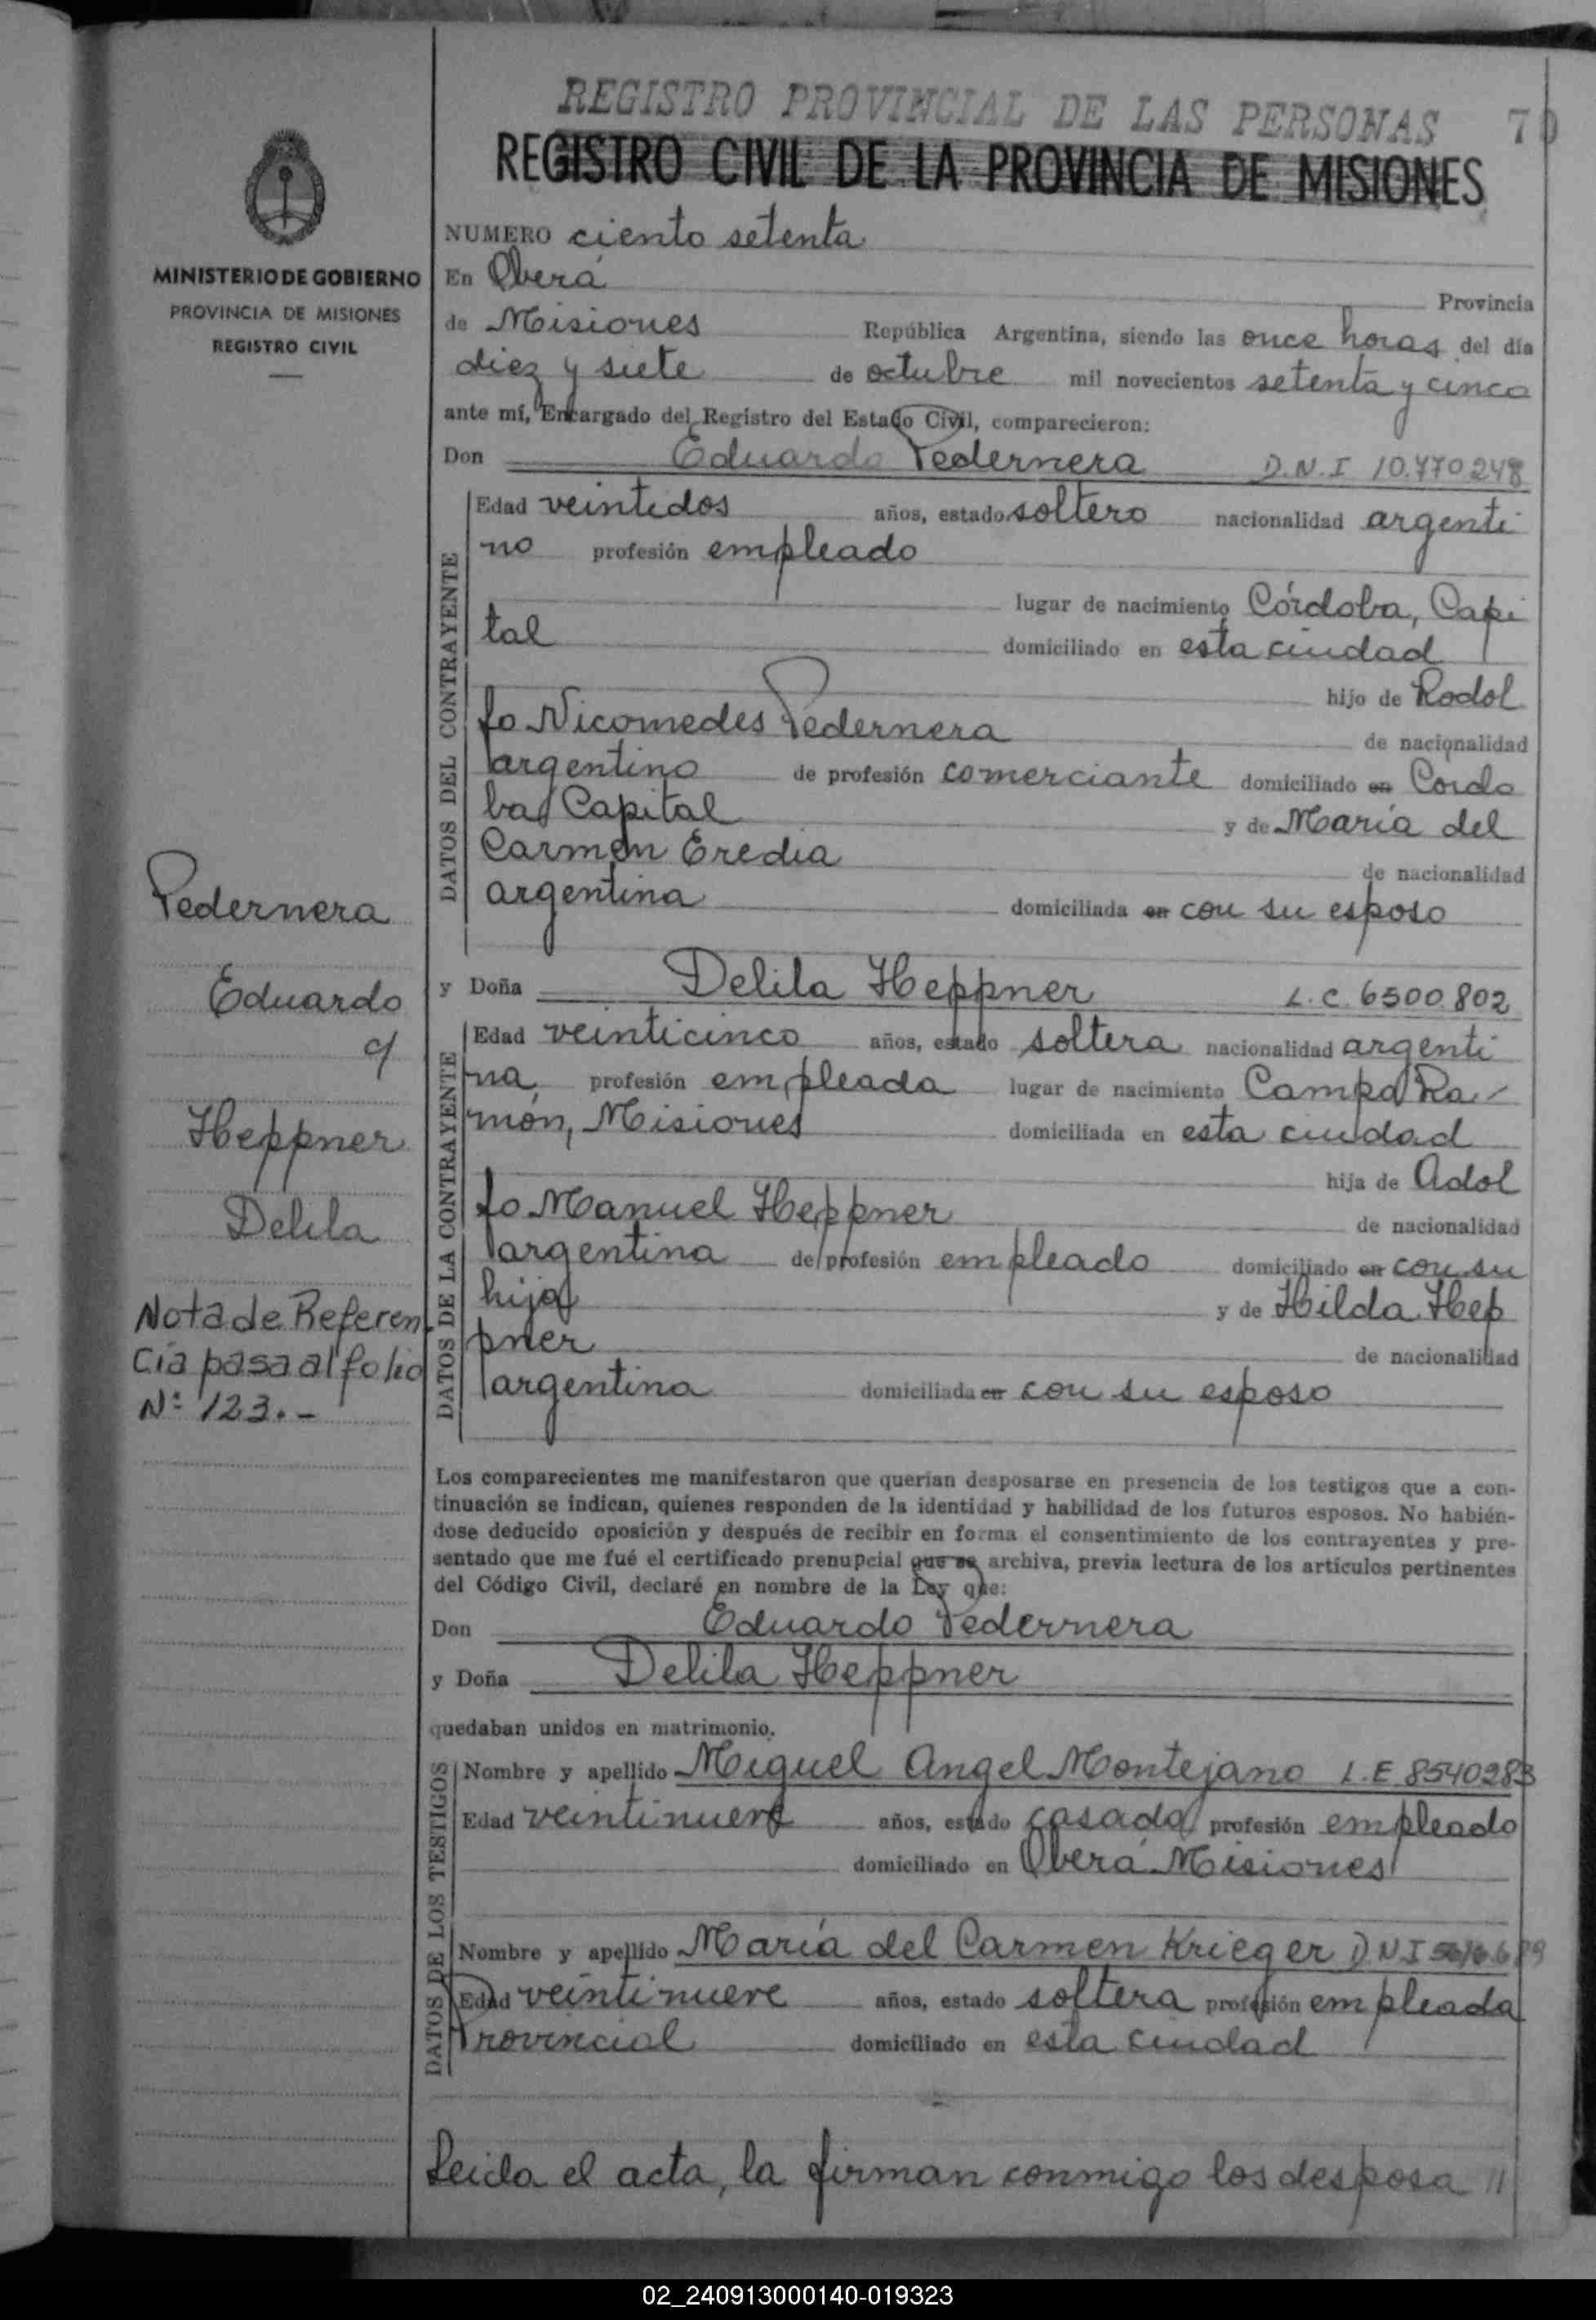 REGISTRO PROVINCIAL DE LAS PERSONAS 70
REGISTRO CIVIL DE LA PROVINCIA DE MISIONES
MINISTERIO DE GOBIERNO
PROVINCIA DE MISIONES
REGISTRO CIVIL
NUMERO ciento setenta
En Oberá Provincia
de Misiones República Argentina, siendo las once horas del día
diez y siete de octubre mil novecientos setenta y cinco
ante mí, Encargado del Registro del Estado Civil, comparecieron:
Don Eduardo Pedernera D.N.I 10.770248
DATOS DEL CONTRAYENTE
Edad veintidos años, estado soltero nacionalidad argenti
no profesión empleado
lugar de nacimiento Córdoba, Capi
tal domiciliado en esta ciudad
hijo de Rodol
fo Nicomedes Pedernera de nacionalidad
argentino de profesión comerciante domiciliado en Cordo
ba Capital y de María del
Carmen Eredia de nacionalidad
argentina domiciliada en con su esposo
Pedernera
Eduardo
c/
Heppner
Delila
Nota de Referen
cia pasa al folio
Nº 123.-
y Doña Delila Heppner L.C. 6500.802
DATOS DE LA CONTRAYENTE
Edad veinticinco años, estado soltera nacionalidad argenti
na profesión empleada lugar de nacimiento Campo Ra-
món, Misiones domiciliada en esta ciudad
hija de Adol
fo Manuel Heppner de nacionalidad
argentina de profesión empleado domiciliado en con su
hija y de Hilda Hep
pner de nacionalidad
argentina domiciliada en con su esposo
Los comparecientes me manifestaron que querían desposarse en presencia de los testigos que a con-
tinuación se indican, quienes responden de la identidad y habilidad de los futuros esposos. No habién-
dose deducido oposición y después de recibir en forma el consentimiento de los contrayentes y pre-
sentado que me fué el certificado prenupcial que se archiva, previa lectura de los artículos pertinentes
del Código Civil, declaré en nombre de la Ley que:
Don Eduardo Pedernera
y Doña Delila Heppner
quedaban unidos en matrimonio.
DATOS DE LOS TESTIGOS
Nombre y apellido Miguel Angel Montejano L.E 8540283
Edad veintinueve años, estado casado profesión empleado
domiciliado en Oberá Misiones
Nombre y apellido María del Carmen Krieger D.N.I
Edad veintinueve años, estado soltera profesión empleada
Provincial domiciliado en esta ciudad
Leida el acta, la firman conmigo los desposa //
02_240913000140-019323